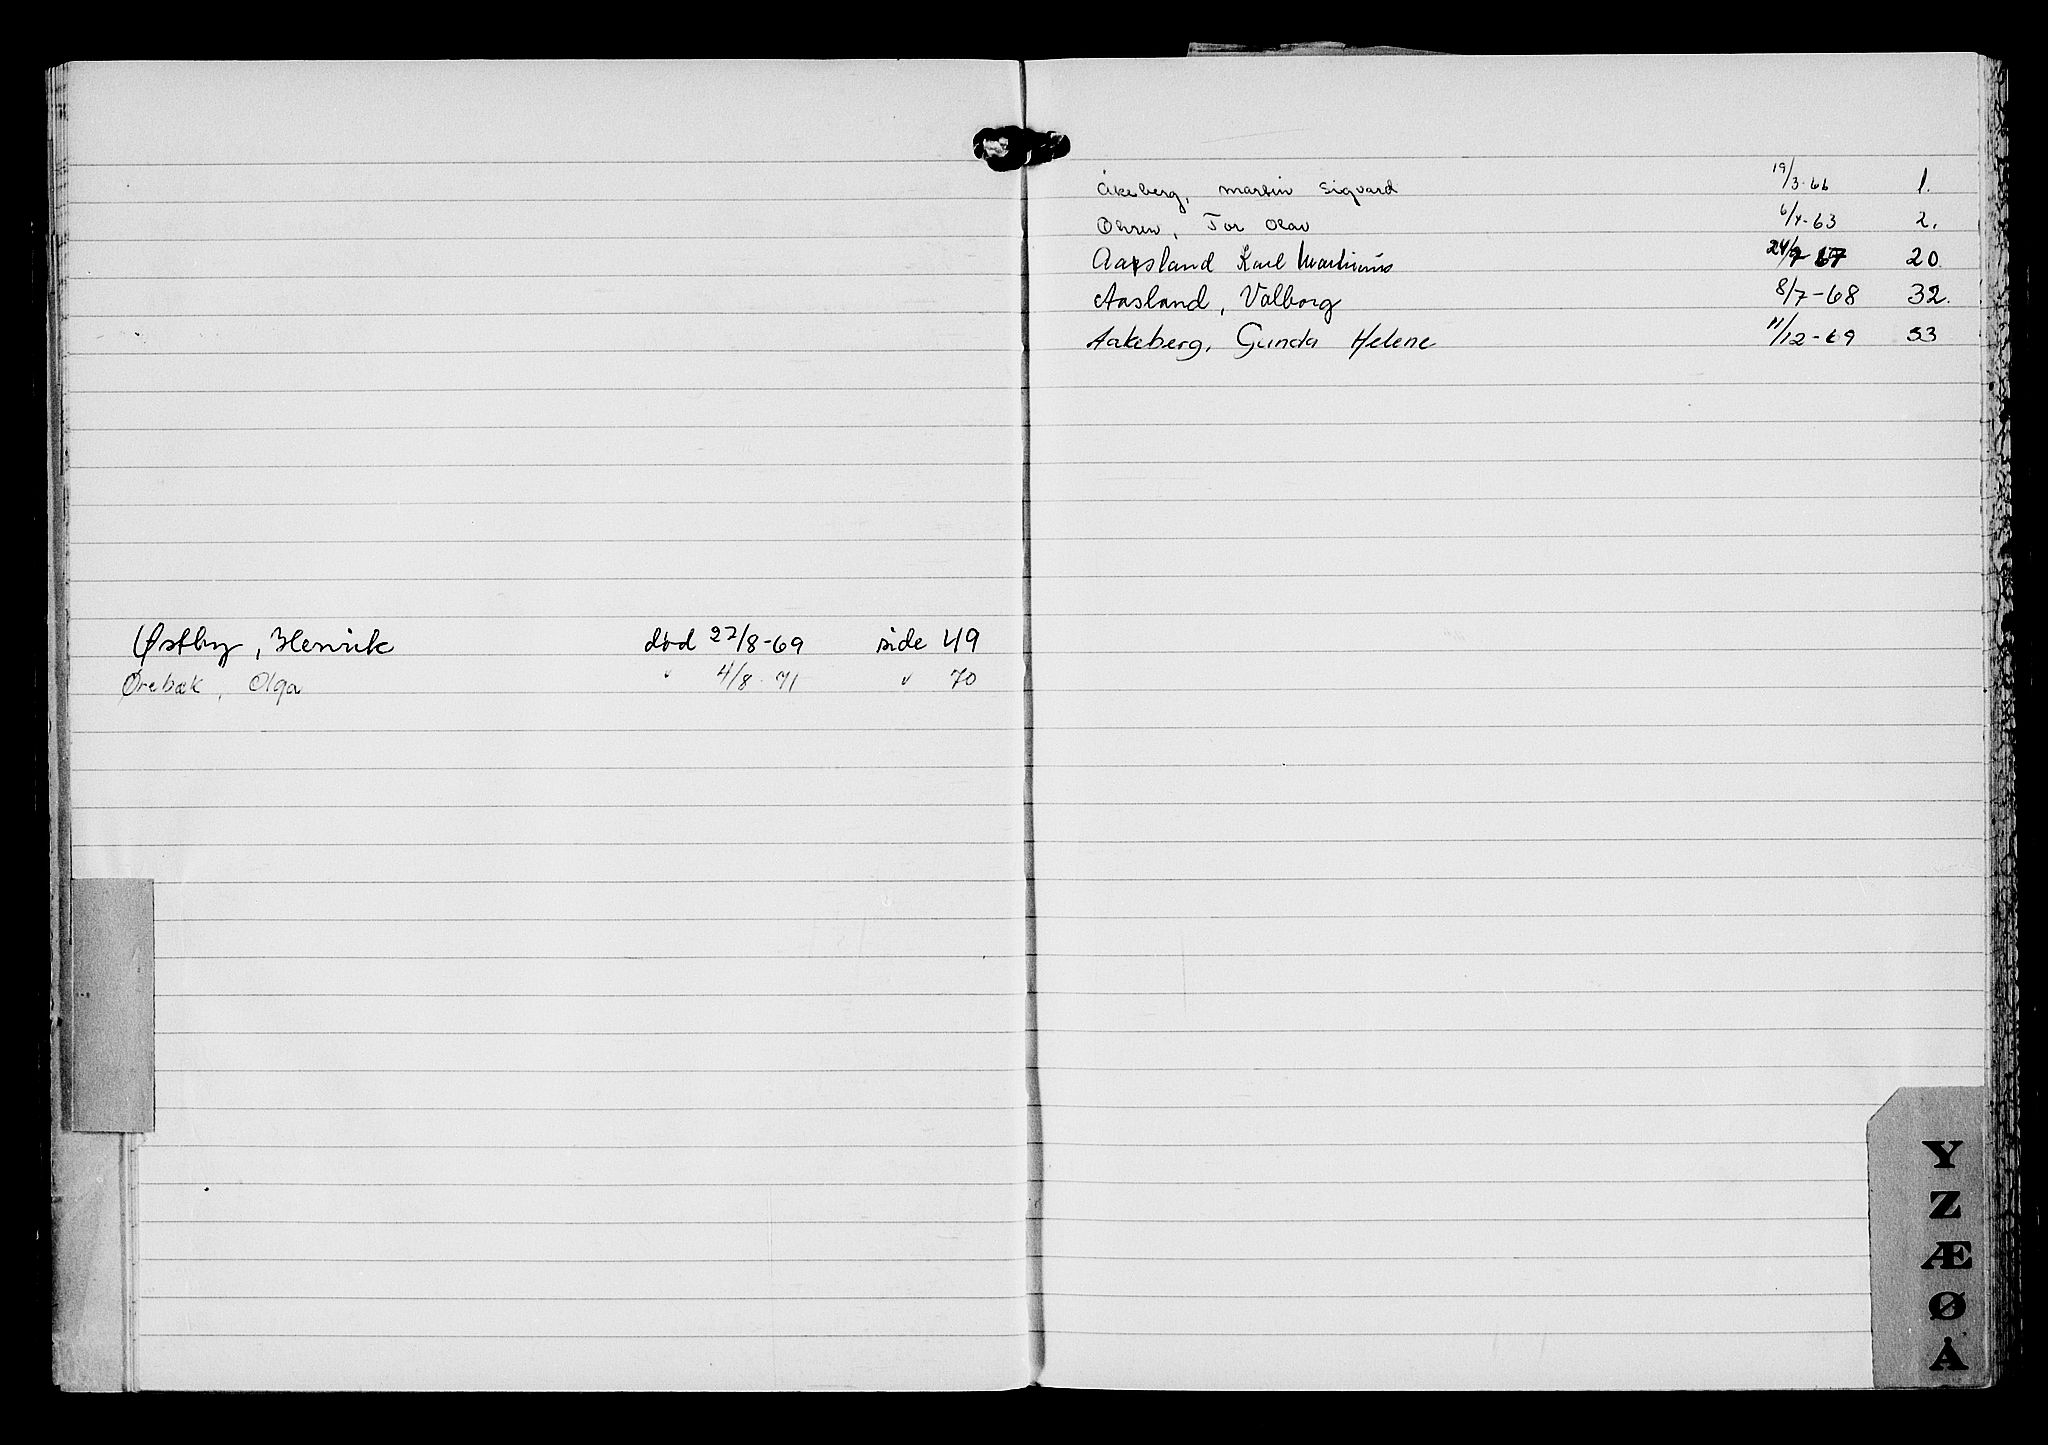 Østby, Henrik død 27/8-69 side 49
Ørebæk, Olga " 4/8-71 " 70
Åkeberg, Martin Sigvard 19/3-66 1.
Tor Olav 6/4-63 2.
Aarsland Karl Martinius 24/9 67 20.
Aasland, Valborg 8/7-68 32.
Aakeberg, Gunda Helene 11/12-69 53
Y
Z
Æ
Ø
Å